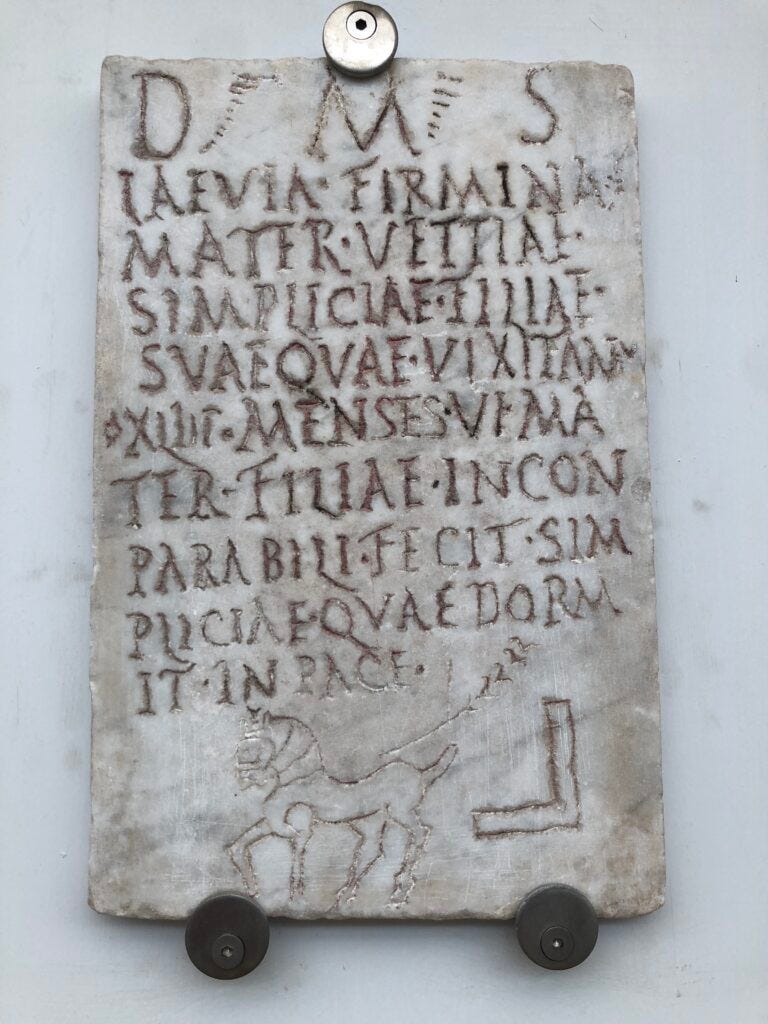 D M S
LAEVIA · FIRMINA
MATER · VETTIAE ·
SIMPLICIAE · FILIAE ·
SVAE QVAE · VIXIT ANN
XIIII · MENSES · VI MA
TER · FILIAE · INCON
PARABILI · FECIT · SIM
PLICIAE · QVAE DORM
IT · IN PACE ·